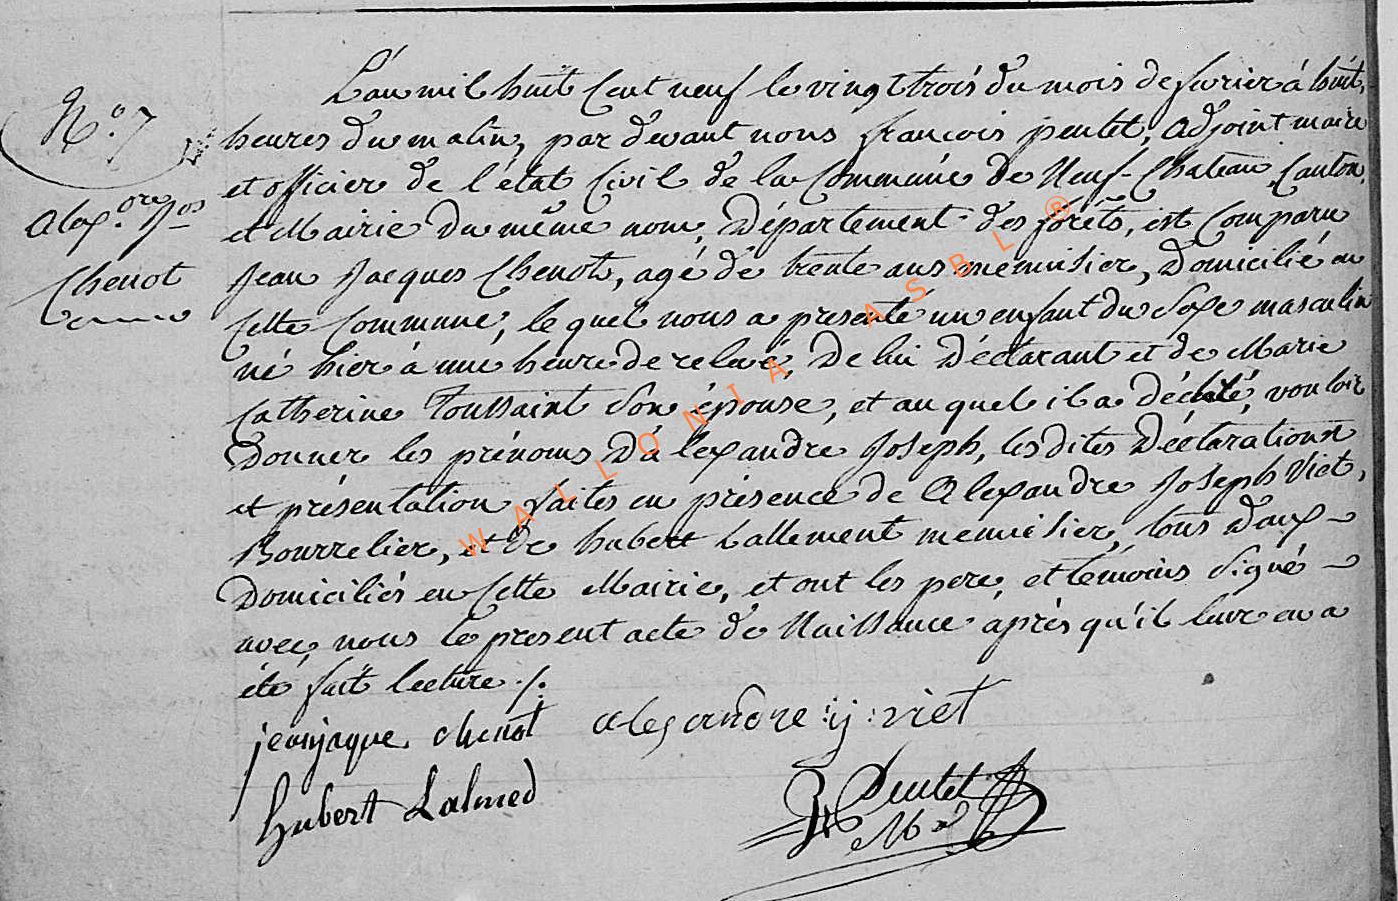 N.º 7
Alex.dre Jos
Chenot
L'an mil huit Cent neuf le vingt trois du mois de fevrier à huit
heures du matin, par devant nous françois pentet, Adjoint maire
et officier de l'état Civil de la Commune de Neuf-Chateau, Canton,
et Mairie du même nom, Département des forêts, est Comparu
Jean Jacques Chenot, agé de trente ans menuisier, Domicilié en
Cette Commune, le quel nous a presenté un enfant du Sexe masculin
né hier à une heure de relevé, De lui Déclarant et de Marie
Catherine Toussaint Son épouse, et au quel il a déclaré, vouloir
Donner les prénoms D'alexandre Joseph, les dites Déclaration
et présentation faites en présence de Alexandre Joseph Viet,
Bourrelier, et de hubert Lallement menuisier, tous Deux
Domiciliés en Cette Mairie, et ont les pere, et témoins Signé
avec nous le present acte de Naissance après qu'il leur en a
été fait lecture ./.
jeanjaque chenot alexandre :j: viet
hubert Lalmed
WALLONIA ASBL ®